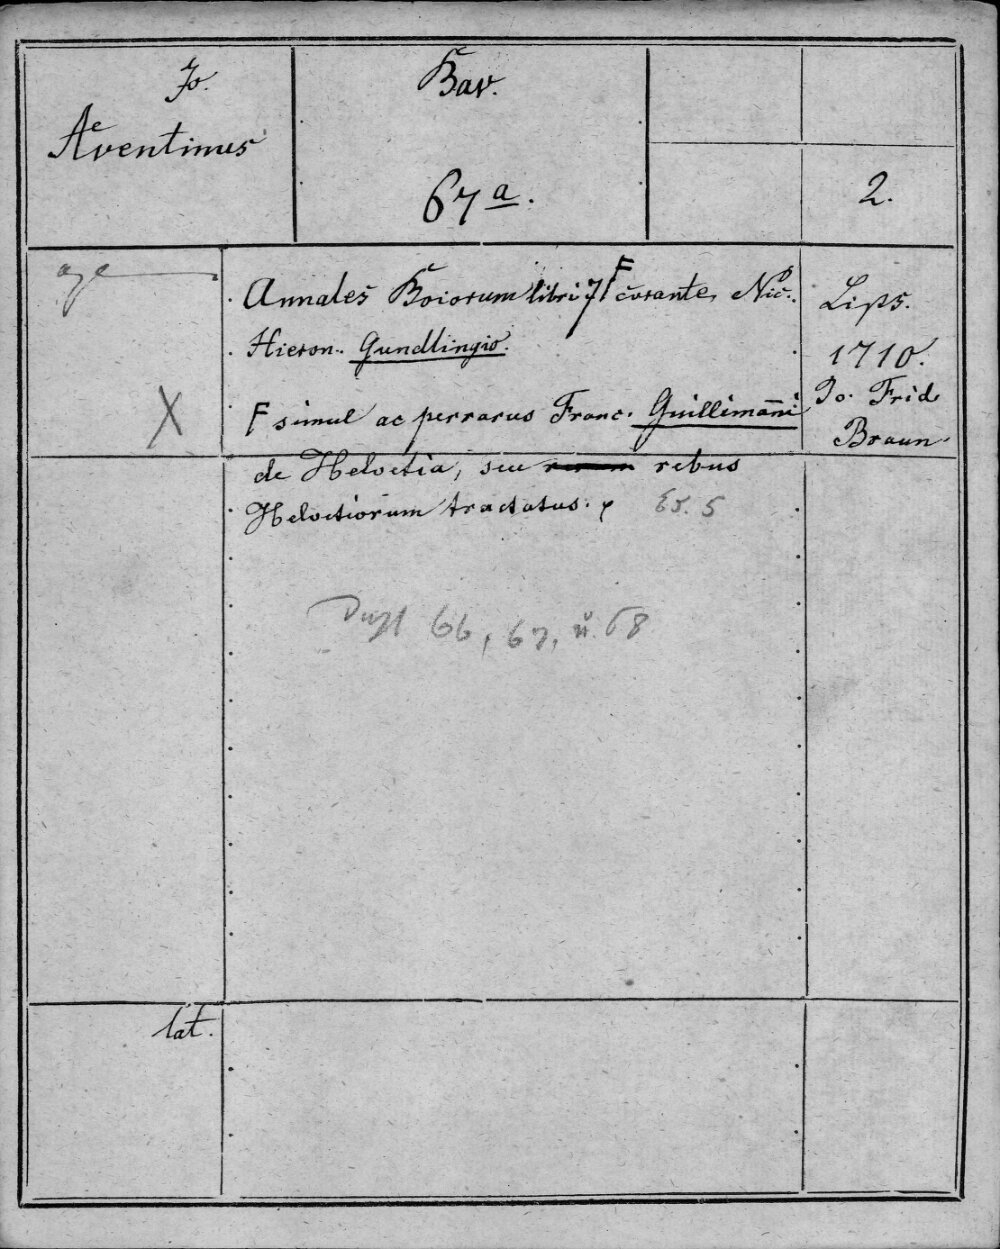 Jo.
Aventinus
Bav.
67 a.
2.
Annales Boiorum libri 7 F curante, Nic.
Hieron. Gundlingio.
F simul ac perrarus Franc. Guillimanni
de Helvetia, seu rebus
Helvetiorum tractatus.
Lips.
1710.
Jo. Frid.
Braun.
X
Es. 5
66, 67, u. 68
lat.